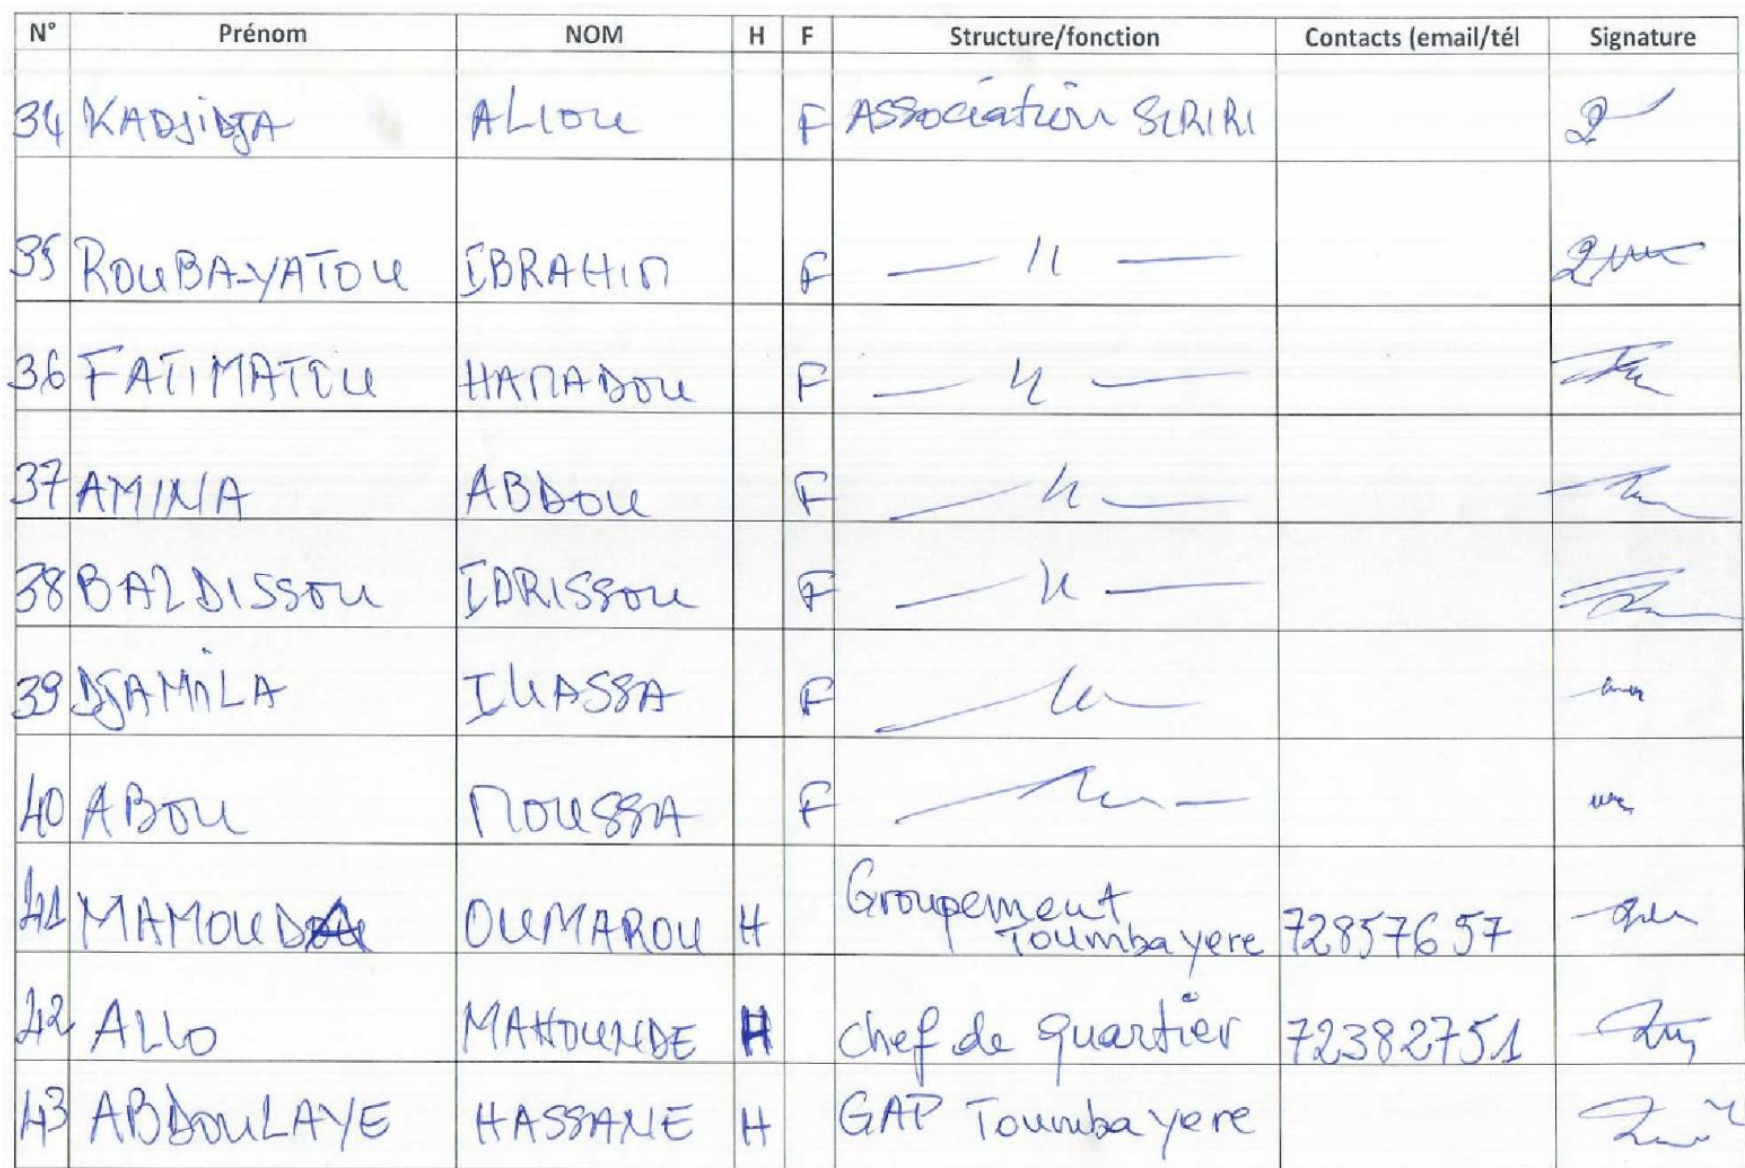 N° Prénom NOM H F Structure/fonction Contacts (email/tél Signature
34 KADJIDJA ALIOU F ASSociation SIRIRI
35 ROUBA-YATOU IBRAHIM F — 〃 —
36 FATIMATOU HAMADOU F — 〃 —
37 AMINA ABDOU F — 〃 —
38 BALDISSOU IDRISSOU F — 〃 —
39 DJAMILA F — 〃 —
40 ABOU MOUSSA F — 〃 —
41 MAMOUDA OUMAROU H Groupement Toumbayere 72857657
42 ALLO MAHOUNDE H chef de quartier 72382751
43 ABDOULAYE HASSANE H GAP Toumbayere